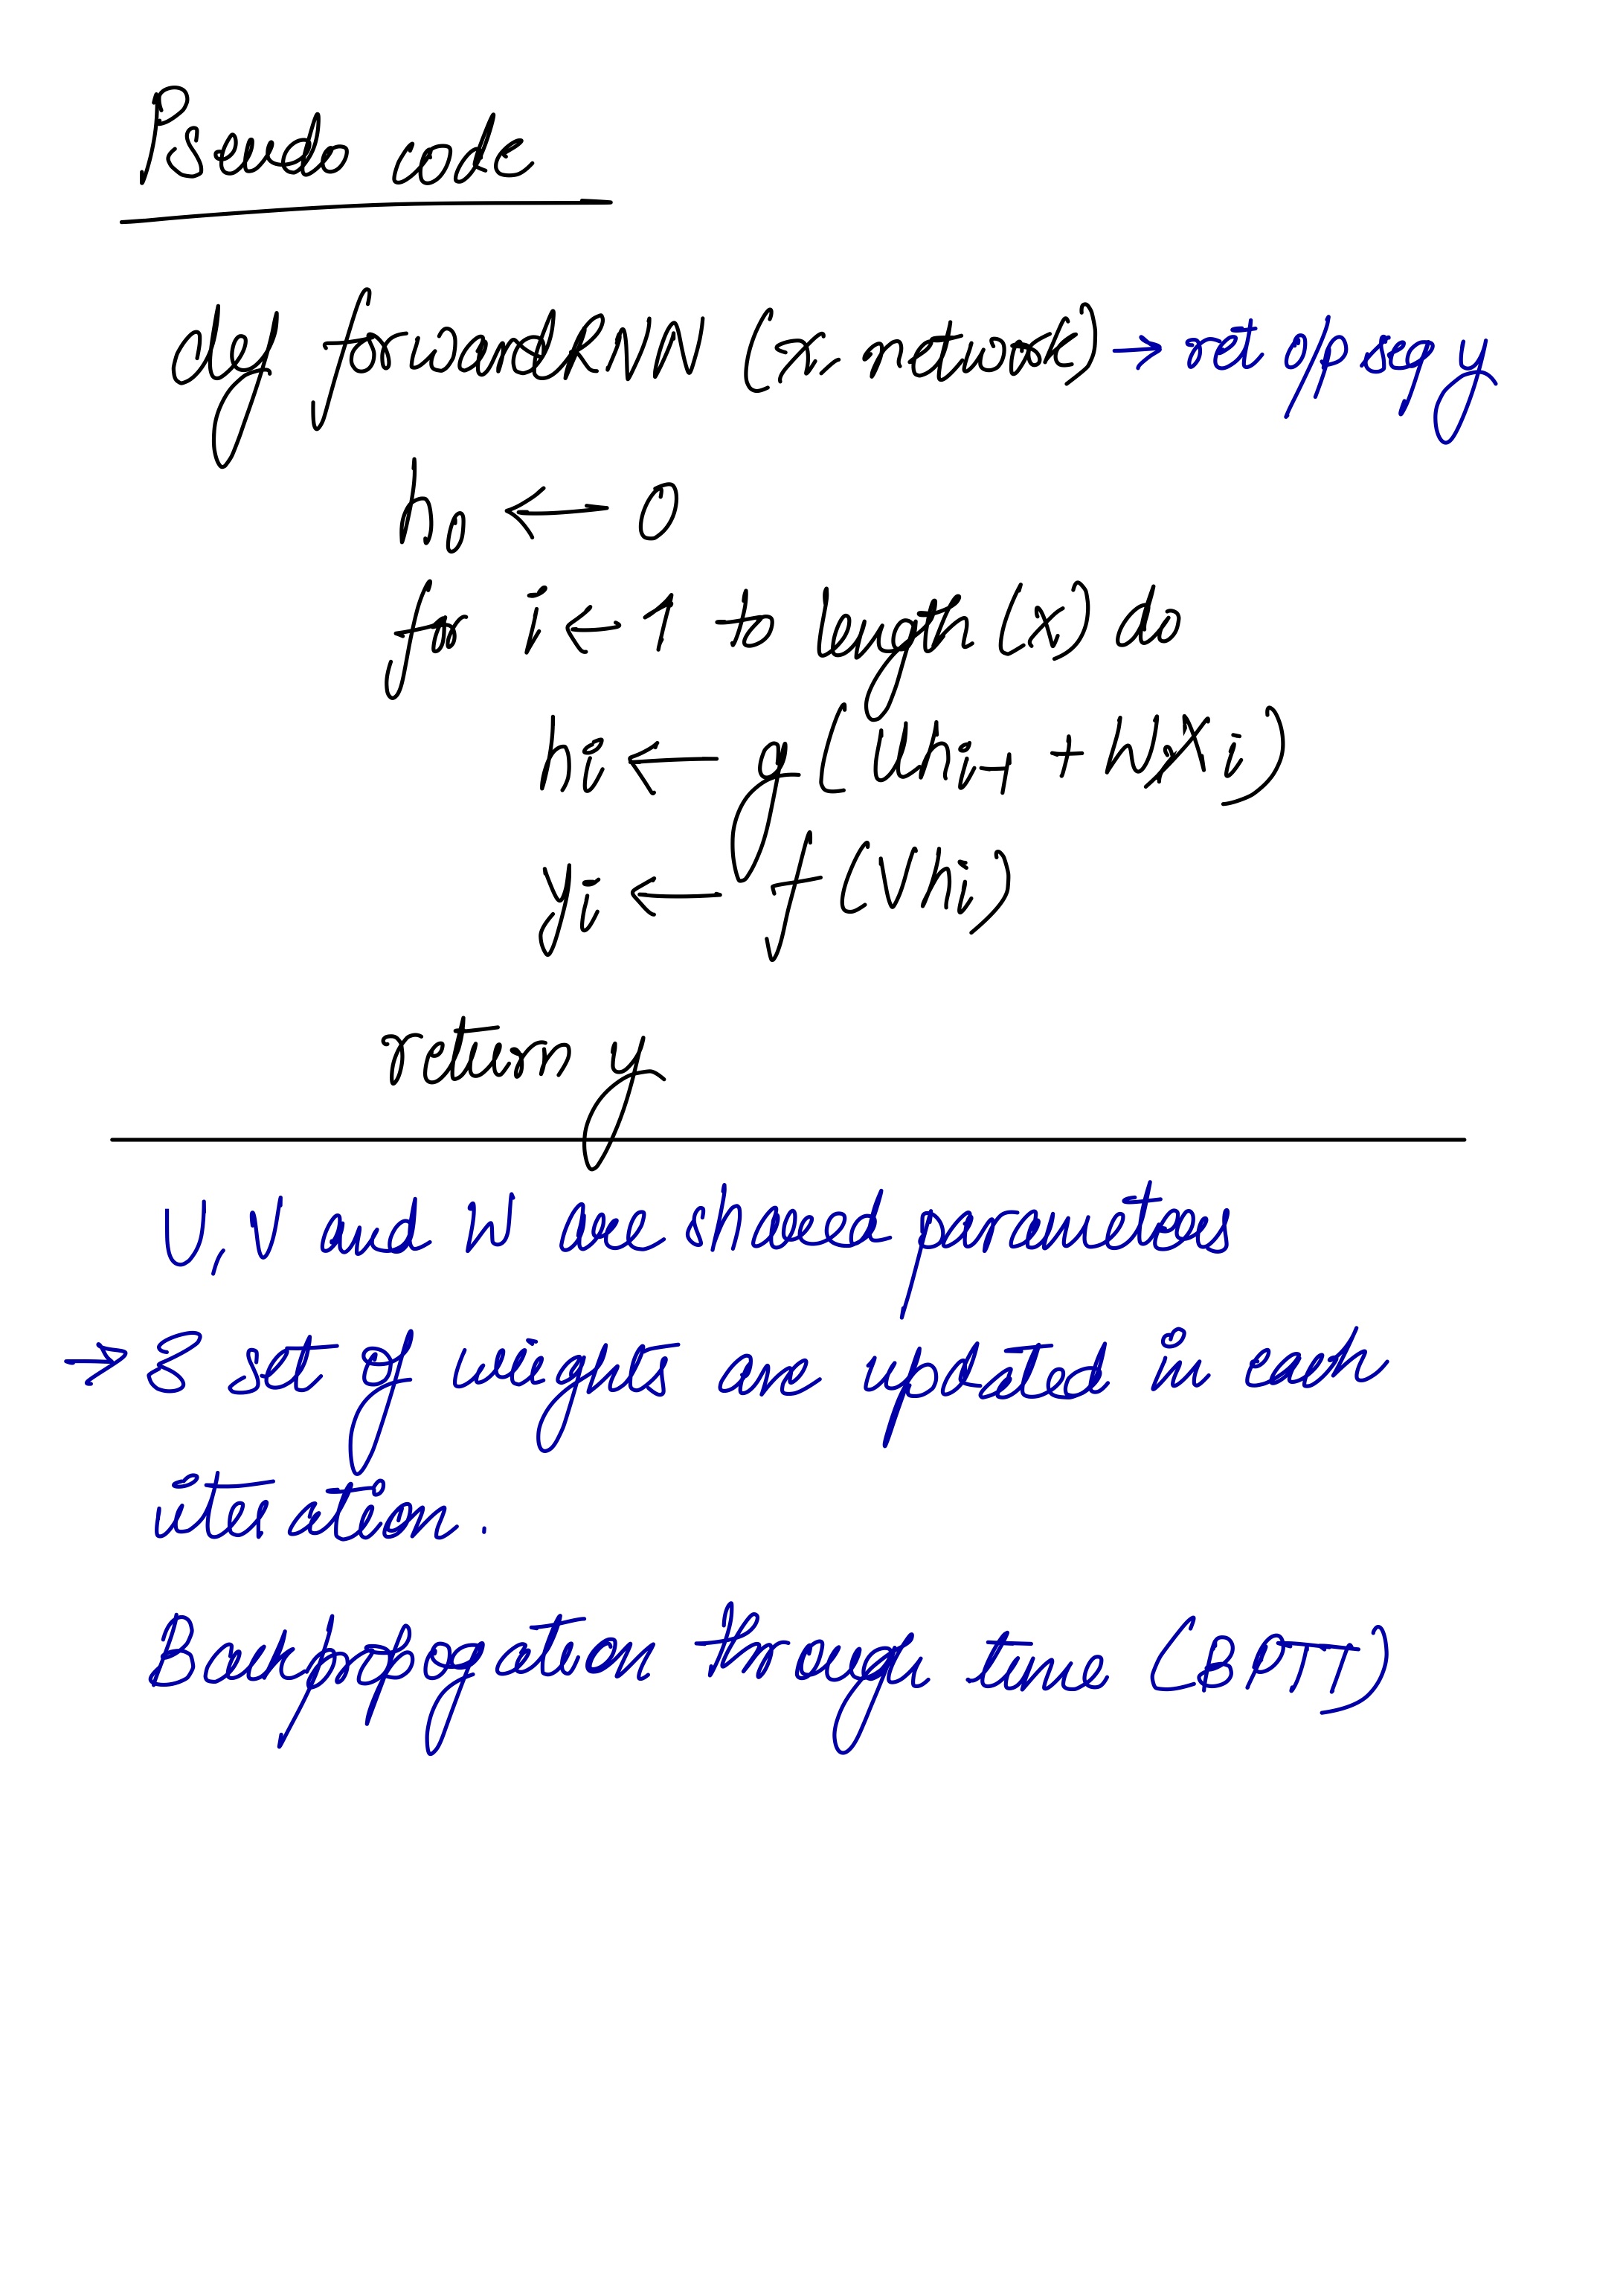 Pseudo code
def forwardRNN (x, network) → ret o/p seq y
h₀ ← 0
for i ← 1 to length (x) do
hᵢ ← g(Uhᵢ₋₁ + WXᵢ)
yᵢ ← f(Vhᵢ)
return y
U, V and W are shared parameters
→ 3 set of weights are updated in each
iteration.
Backppogation through time (BPTT)